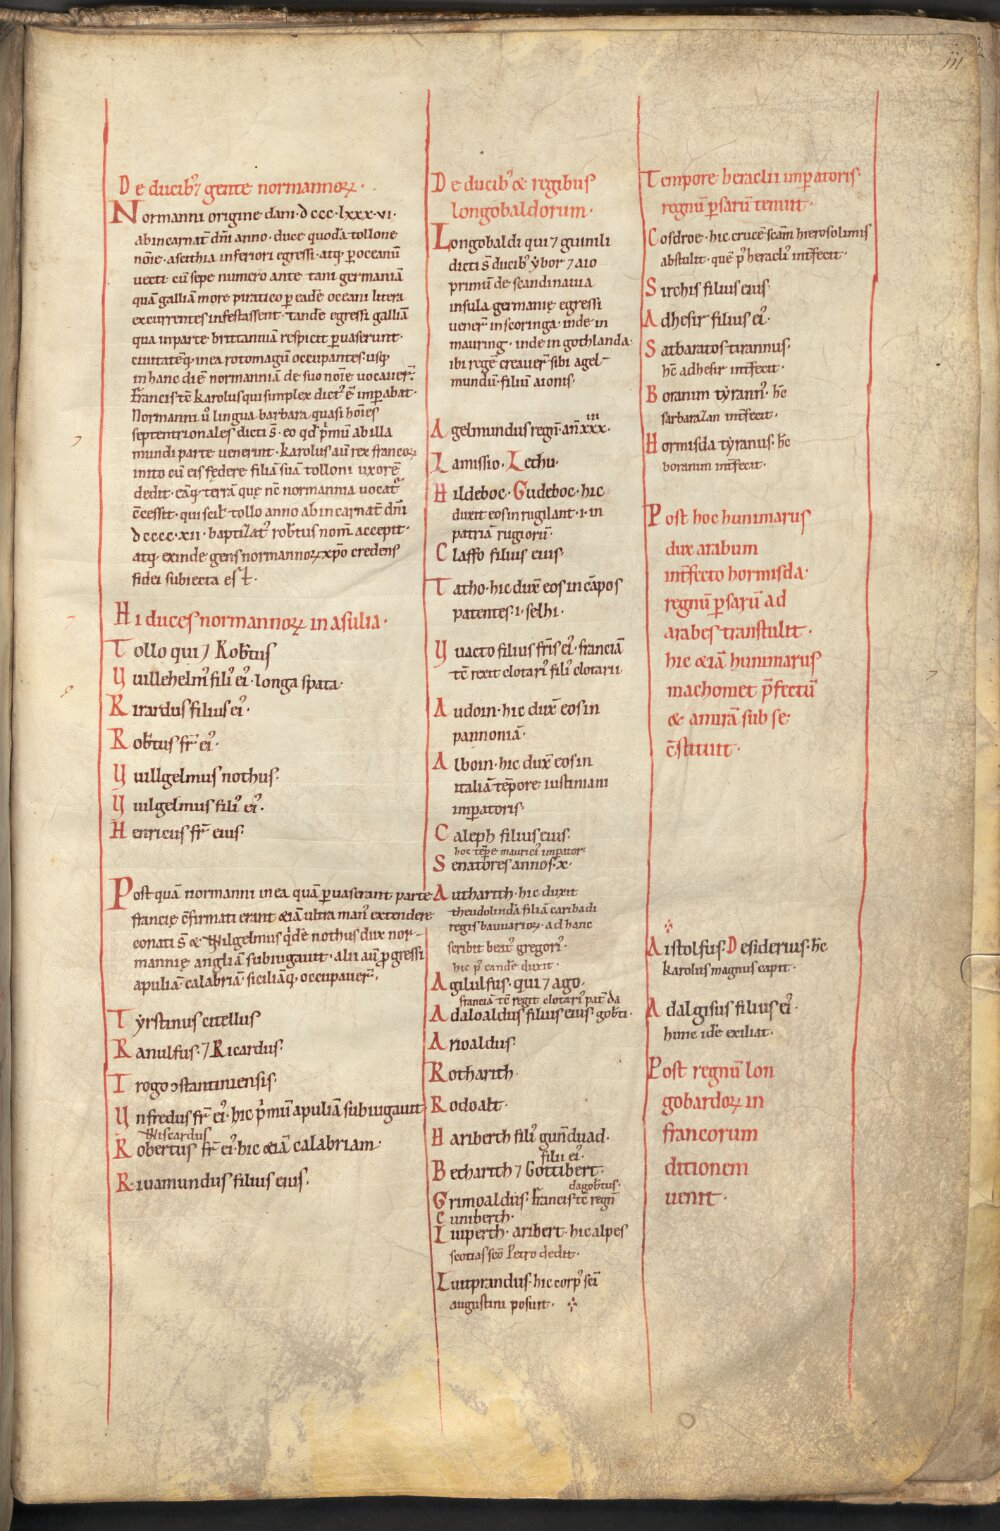 iii
De ducib⁊ gente normannoꝝ·
Normanni origine dani· dccc·lxxx·vi·
ab incarnat̄ dn̄i anno· duce quodā tollone
nōie· a scithia inferiori egressi· atq; ꝑ oceanū
uecti· cū sepe numero ante tam germaniā
quā galliā more piratico ꝑ eadē oceani litera
excurrentes infestassent· tandē egressi galliā
qua in parte brittanniā respicit ꝑuaserunt·
ciuitatēq; in ea rotomagū occupantes· usq;
in hanc diē normanniā de suo nōie uocauer̄·
francis tē karolus qui simplex dict᾽ ē imꝑabat·
Normanni ū lingua barbara quasi hōies
septentrionales dicti s̄· eo qd̄ p̄mū ab illa
mundi parte uenerint· karolus aū rex francoꝝ
inito cū eis fędere filiā suā tolloni uxorē
dedit· eāq; terrā quę nc̄ normannia uocat᾽
c̄cessit· qui scil· tollo anno ab incarnat̄ dn̄i
dcccc·xii· baptizat᾽ rob̄tus nom̄ accepit·
atq; exinde gens normannoꝝ xp̄o credens
fidei subiecta est·
Hi duces normannoꝝ in asulia·
Tollo qui ⁊ Rob̄tus
Vuillehelm᾽ fili᾽ ei᾽· longa spata·
Rirardus filius ei᾽·
Rob̄tus fr̄ ei᾽·
Vuillgelmus nothus·
Vuilgelmus fili᾽ ei᾽·
Henricus fr̄ eius·
Post quā normanni in ea quā ꝑuaserant parte
francię c̄firmati erant &iā ultra man᾽ extendere
conati s̄ & Wilgelmus q̇dē nothus dux nor-
mannię angliā subiugauit· alii aū ꝓgressi
apuliā· calabriā· siciliāq; occupauer̄·
Tyrstinus citellus
Ranulfus· ⁊ Ricardus·
Trogo ↄstantiniensis·
Vnfredus fr̄ ei᾽· hic p̄mū apuliā subiugauit
Wiscardus
Robertus fr̄ ei᾽· hic &iā calabriam·
R·iuamundus filius eius·
De ducib᾽ & regibus
longobaldorum·
Longobaldi qui ⁊ guinili
dicti s̄ ducib᾽ ybor ⁊ aio
primū de scandinauia
insula germanię egressi
uener̄ in scoringa· inde in
mauring· inde in gothlanda·
ibi regē creauer̄ sibi agel-
mundū· filiū aionis·
iii
Agelmundus regn̄· an̄ xxx·
Lamissio· Lethu·
Hildeboc· Gudeboc· hic
duxit eos in rugilant· i· in
patriā rugiorū·
Claffo filius eius·
Tatho· hic dux̄ eos in cāpos
patentes· i· felhi·
Vuacto filius fr̄is ei᾽· franciā
tē rexit clotari᾽ fili᾽ clotarii
Audoin· hic dux̄ eos in
pannoniā·
Alboin· hic dux̄ eos in
italiā tēpore iustiniani
imꝑatoris·
Caleph filius eius·
hoc tēpre maurici᾽ imꝑator·
Senatores annos· x·
Autharith· hic duxit
theudolindā filiā caribadi
regis bauuarioꝝ· ad hanc
scribit beat᾽ gregori᾽·
hic p᾽ eandē duxit·
Agilulfus· qui ⁊ ago·
franciā tē regit clotari᾽ pat̄ da
Adaloaldus filius eius· gob̄ti·
Arioaldus·
Rotharith·
Rodoalt·
Hariberth fili᾽ gundūad·
filii ei᾽·
Becharith ⁊ Gottibert·
dagob̄tus·
Grimoaldus· francis tē regn̄
Cuniberth·
Luiperth· aribert· hic alpes
scotias sc̄o Petro dedit·
Luitprandus· hic corp᾽ sc̄i
augustini posuit·
Tempore heraclii imꝑatoris·
regnū ꝑsarū tenuit·
Cosdroe· hic crucē sc̄am hierosolimis
abstulit· quē p᾽ heracli᾽ int̄fecit·
Sirchis filius eius·
Adhesir filius ei᾽·
Satbaratos tirannus·
hc̄ adhesir int̄fecit·
Boranim tyrann᾽· hc̄
sarbarazan int̄fecit·
Hormisda tyranus· hc̄
boranim int̄fecit·
Post hoc hunimarus
dux arabum
int̄fecto hormisda·
regnū ꝑsarū ad
arabes transtulit·
hic &iā hunimarus
machomet p̄fectū
& amirā sub se
c̄stituit·
Aistolfus· Desiderius· hc̄
karolus magnus capit·
Adalgisus filius ei᾽·
hunc idē exiliat·
Post regnū lon
gobardoꝝ in
francorum
ditionem
uenit·